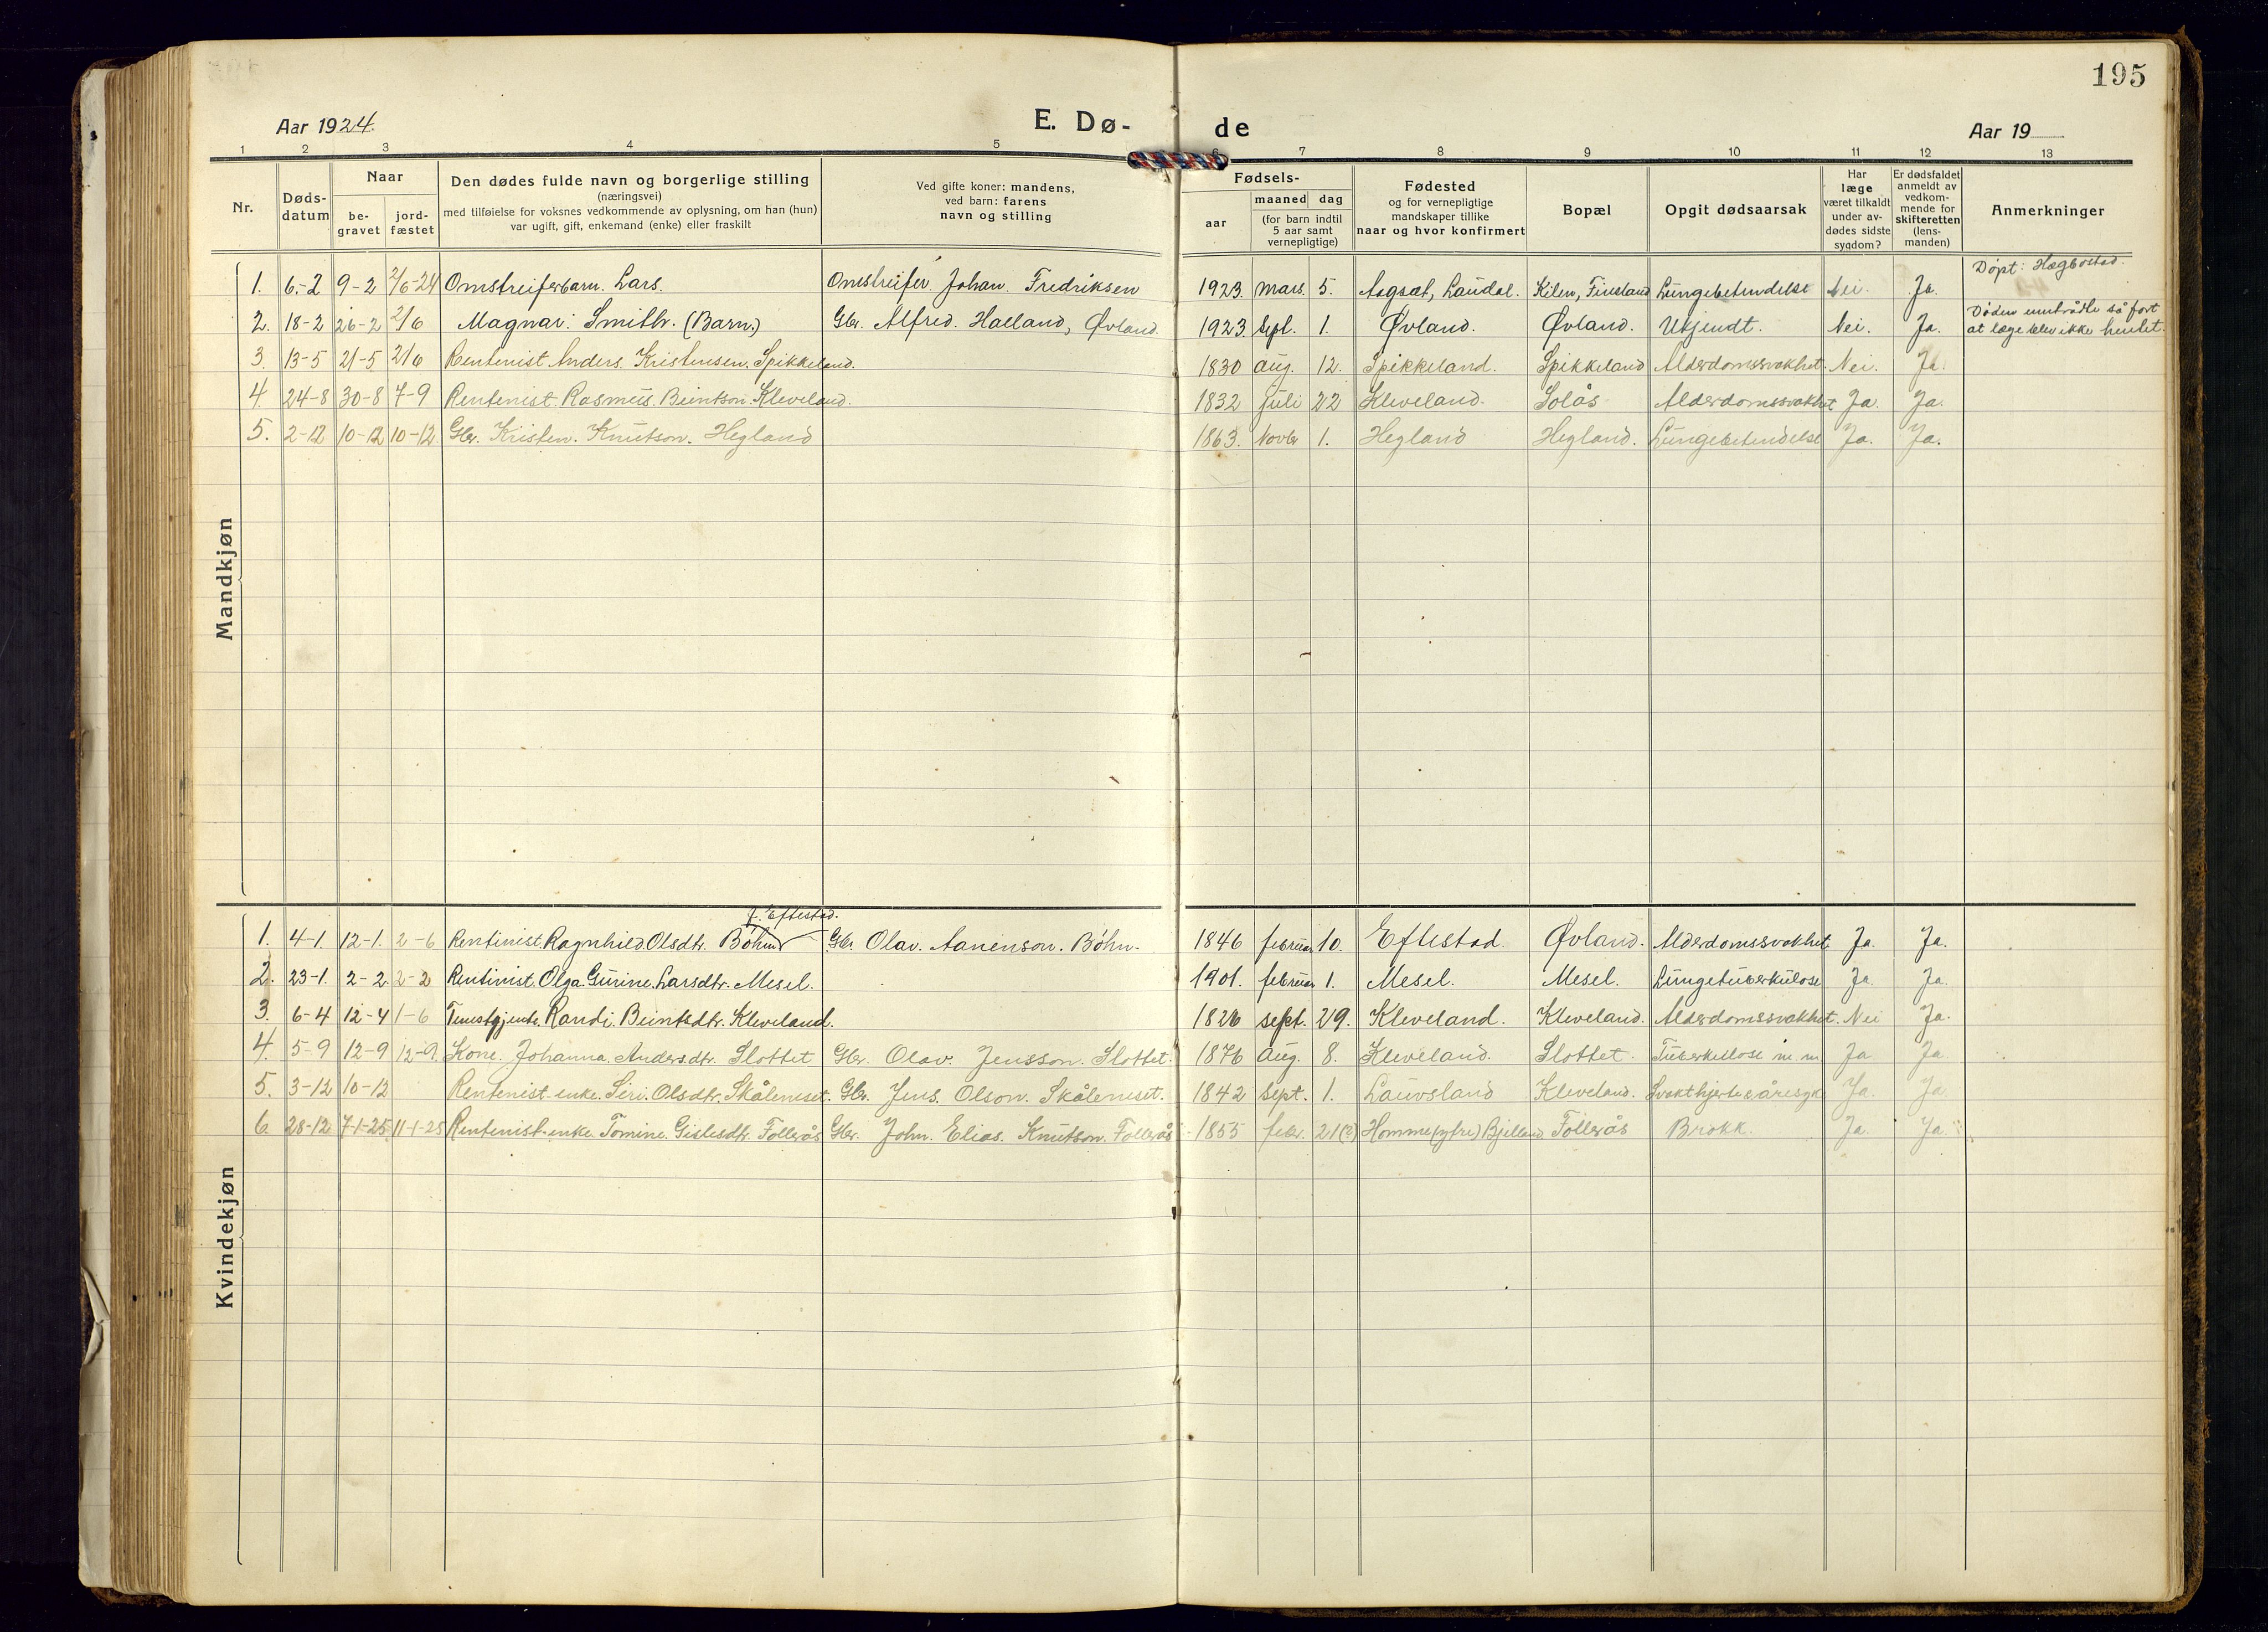 195
Aar 1924.
E. Dø-
de
Aar 19
1 2 3 4 5 6 7 8 9 10 11 12 13
Nr.
Døds-
datum
Naar
be-
gravet
jord-
fæstet
Den dødes fulde navn og borgerlige stilling
(næringsvei)
med tilføielse for voksnes vedkommende av oplysning, om han (hun)
var ugift, gift, enkemand (enke) eller fraskilt
Ved gifte koner: mandens,
ved barn: farens
navn og stilling
Fødsels-
aar
maaned dag
(for barn indtil
5 aar samt
vernepligtige)
Fødested
og for vernepligtige
mandskaper tillike
naar og hvor konfirmert
Bopæl
Opgit dødsaarsak
Har
læge
været tilkaldt
under av-
dødes sidste
sygdom?
Er dødsfaldet
anmeldt av
vedkom-
mende for
skifteretten
(lens-
manden)
Anmerkninger
Mandkjøn
Døpt: Hægbostad.
1. 6-2 9-2 2/6-24 Omstreiferbarn. Lars. Omstreifer. Johan. Fredriksen 1923. Mars. 5. Laudal. Kilen, Finsland Lungebetendelse Nei. Ja.
Døden inntrådte så fort
2. 18-2 26-2 2/6 Magnar. Smith. (Barn.) Gbr. Alfred. Haaland, Øvland. 1923. Sept. 1. Øvland. Øvland. Ukjendt. Nei. Ja. at læge blev ikke hentet.
3. 13-5 21-5 2/6 Rentenist Anders. Kristensen. Spikkeland. 1830 Aug. 12. Spikkeland. Spikkeland Alderdomssvakhet. Nei. Ja.
4. 24-8 30-8 7-9 Rentenist. Rasmus. Beintson. Kleveland. 1832 Juli 22 Kleveland. Solås Alderdomssvakhet Ja. Ja.
5. 2-12 10-12 10-12 Gbr. Kristen. Knutson. Hegland 1863. Novbr 1. Hegland Hegland. Lungebetendelse Ja. Ja.
Kvindekjøn
f. Eftestad.
1. 4-1. 12-1. 2-6 Rentinist. Ragnhild Olsdtr. Bøhn Gbr. Olav. Aanenson. Bøhn. 1846 februar 10. Eftestad. Øvland. Alderdomssvakhet Ja. Ja.
2. 23-1. 2-2. 2-2 Rentinist. Olga. Gurine. Larsdtr. Mesel. 1901. februar 1. Mesel. Mesel. Lungetuberkulose Ja. Ja.
3. 6-4 12-4 1-6 Tenestgjente. Randi. Beintsdtr. Kleveland. 1826 Sept. 29. Kleveland. Kleveland. Alderdomssvakhet. Nei Ja.
4. 5-9 12-9 12-9. Kone. Johanna. Andersdtr. Slottet Gbr. Olav. Jensson. Slottet. 1876 Aug. 8. Kleveland. Slottet. Tuberkulose m. m. Ja Ja
5. 3-12 10-12 Rentenist enke. Siri. Olsdtr. Skåleneset. Gbr. Jens. Olson. Skåleneset. 1842 Sept. 1. Lauvsland Kleveland. Ja. Ja
6. 28-12 7-1-25 11-1-25 Rentenist-enke. Tomine. Gislesdtr. Follerås Gbr. John. Elias. Knutson. Follerås 1855 febr. 21(?) Homme (ytre) Bjelland Follerås Brokk. Ja. Ja.